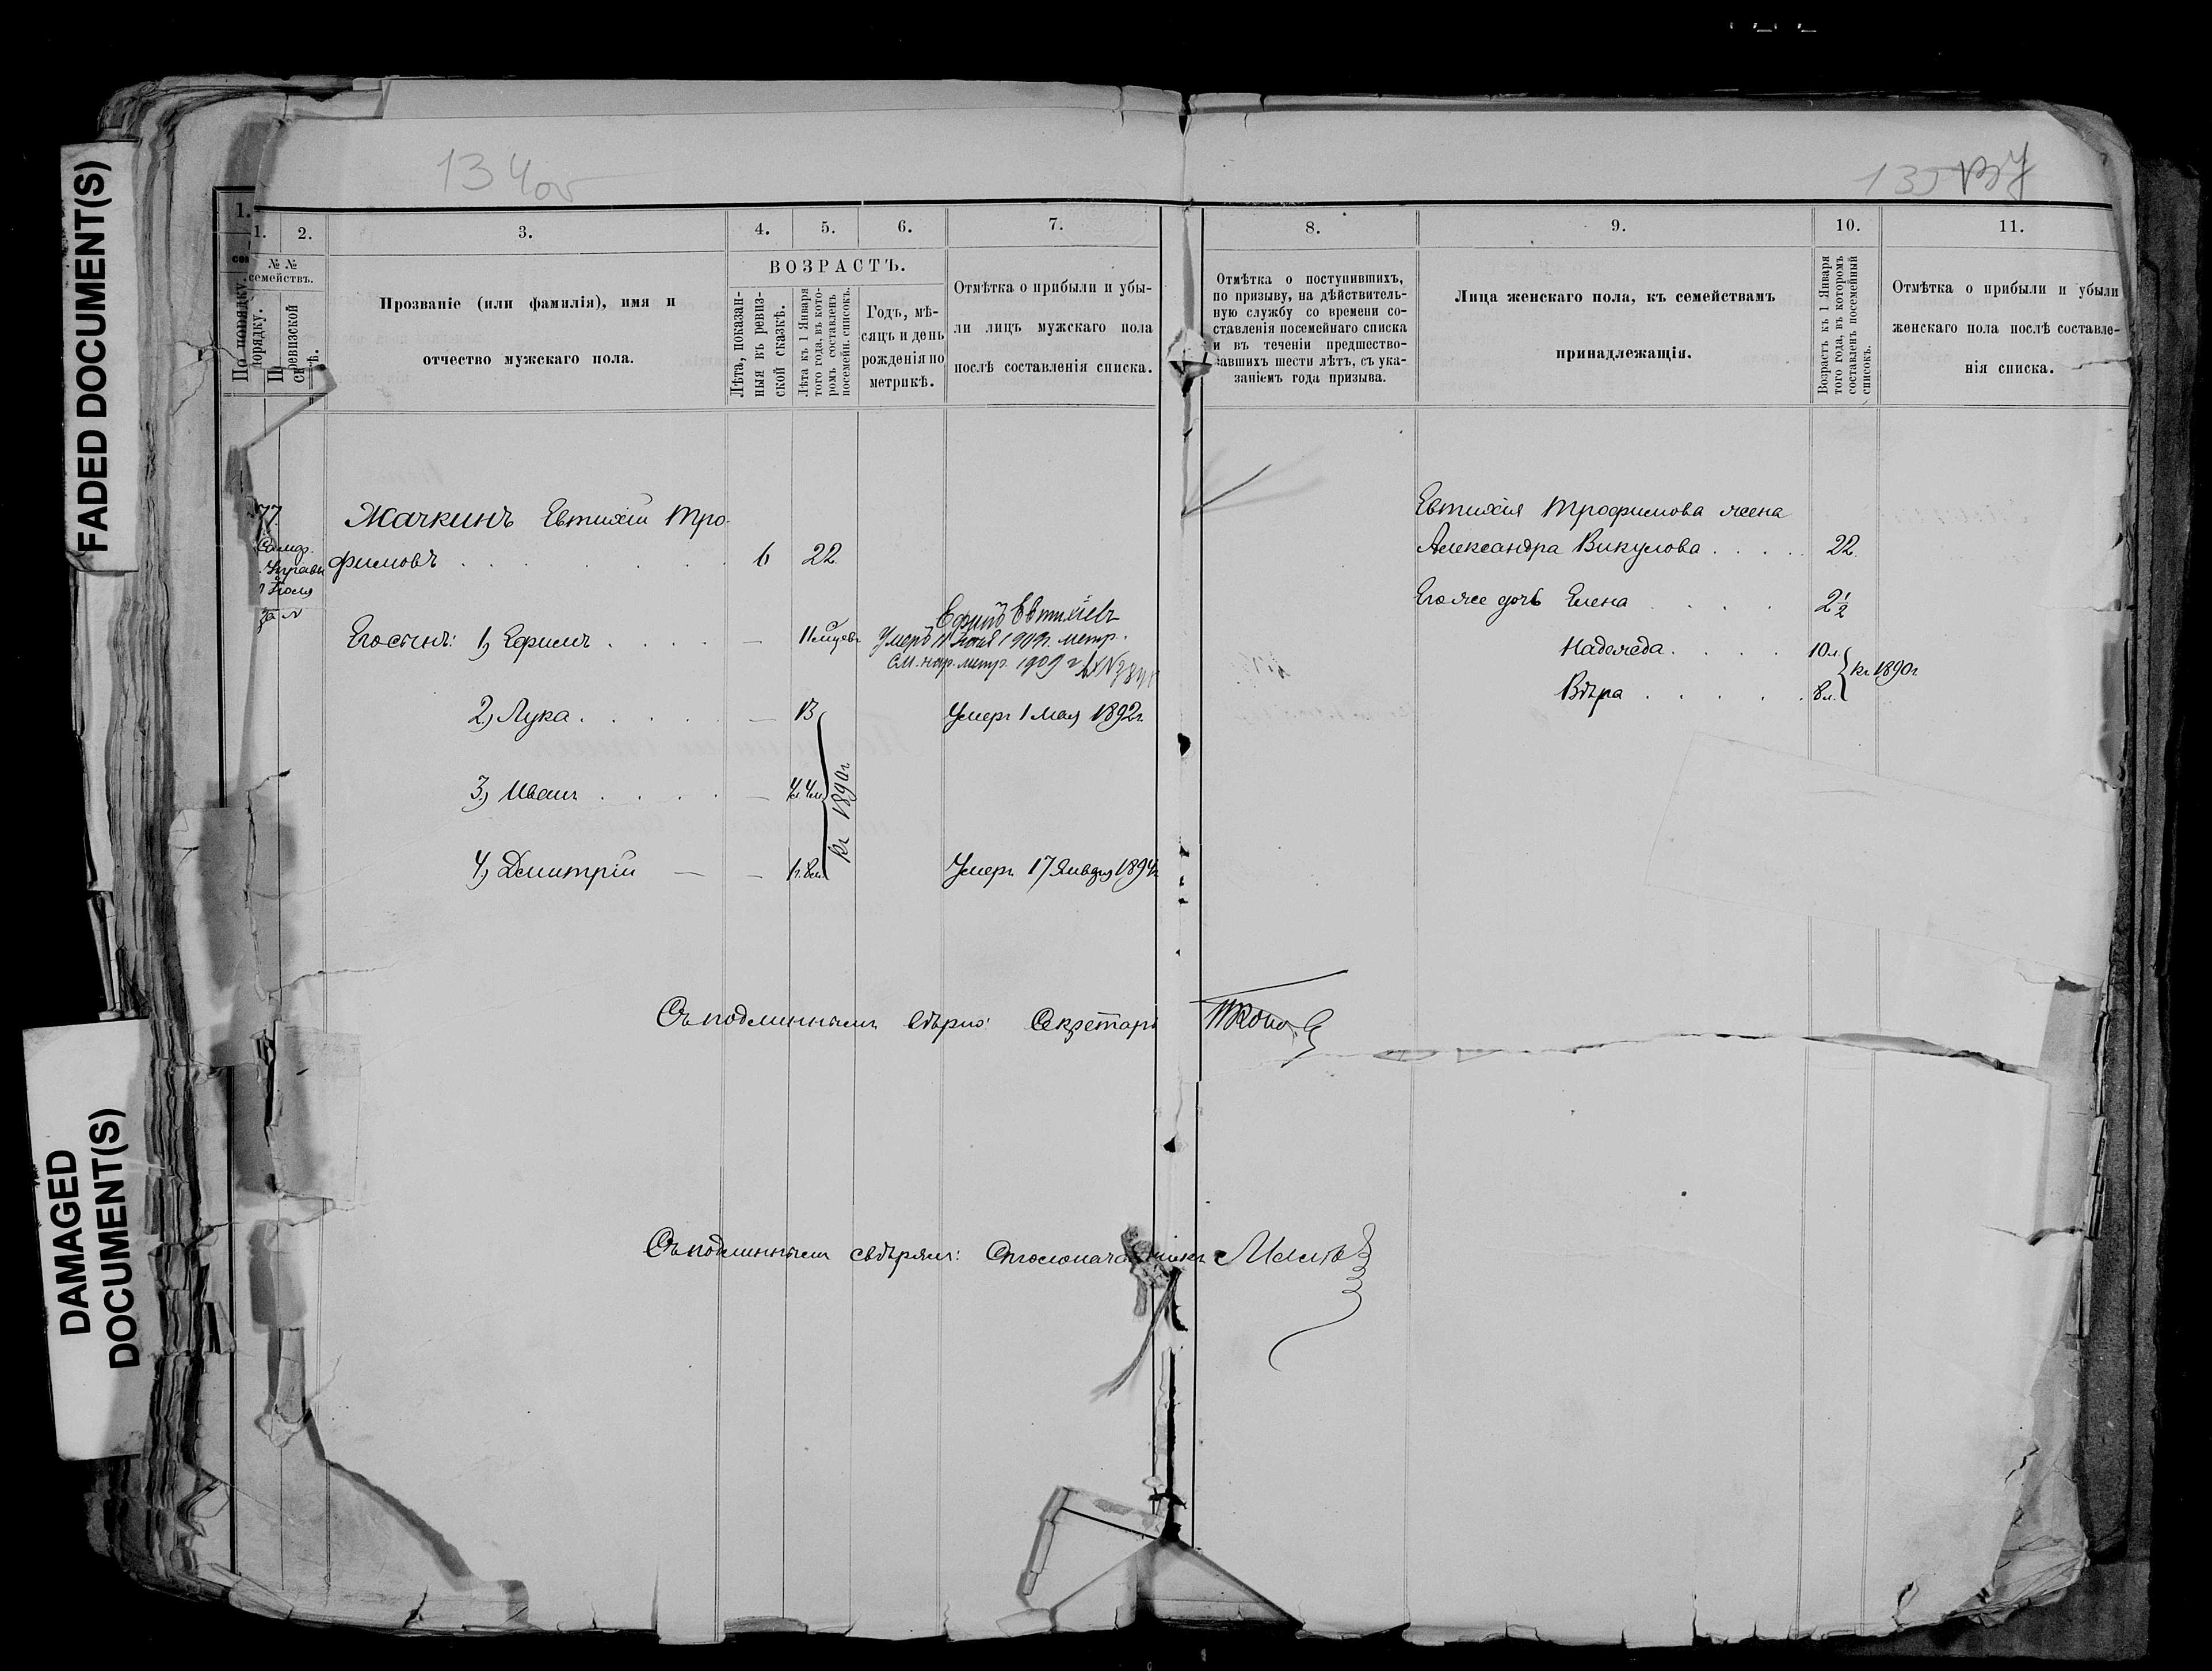 FADED DOCUMENT(S)
DAMAGED DOCUMENT(S)
134об
135
1.
1.
2.
3.
4.
5.
6.
7.
№ №
семействъ.
По порядку.
ревизской
Прозваніе (или фамилія), имя и
отчество мужскаго пола.
ВОЗРАСТЪ.
Лѣта, показан-
ныя въ ревиз-
ской сказкѣ.
Лѣта къ 1 Января
того года, въ кото-
ромъ составленъ
посемейн. списокъ.
Годъ, мѣ-
сяцъ и день
рожденія по
метрикѣ.
Отмѣтка о прибыли и убы-
ли лицъ мужскаго пола
послѣ составленія списка.
77
Жачкинъ Евтихій Тро-
фимовъ 6 22
Его сынъ: 1, Ефимъ — 11 мѣсяцев
Ефимъ Евтихіевъ
Умеръ 11 1909г. метр.
См. метр. 1909 г
2, Лука — 13 Умеръ 1 Мая 1892г.
3, Иванъ — 4л.
къ 1890г
4, Дмитрій — — Умеръ 17 Января 1894г
Съ подлиннымъ вѣрно: Секретарь
Съ подлиннымъ свѣрялъ: Столоначальникъ
8.
9.
10.
11.
Отмѣтка о поступившихъ,
по призыву, на дѣйствитель-
ную службу со времени со-
ставленія посемейнаго списка
и въ теченіи предшество-
вавшихъ шести лѣтъ, съ ука-
заніемъ года призыва.
Лица женскаго пола, къ семействамъ
принадлежащія.
Возрастъ къ 1 Января
того года, въ которомъ
составленъ посемейный
списокъ.
Отмѣтка о прибыли и убыли
женскаго пола послѣ составле-
нія списка.
Евтихія Трофимова жена
Александра Викулова 22
Его же дочь Елена 2½
Надежда 10л.
къ 1890г
Вѣра 8л.